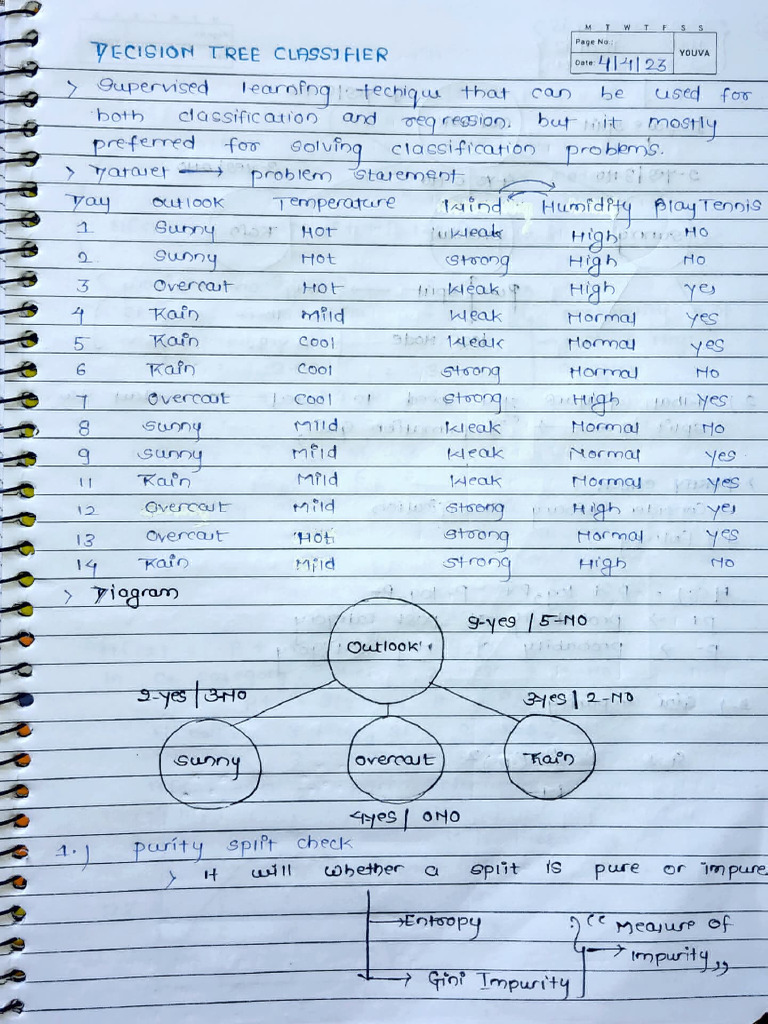 M T W T F S S
Page No.:
Date: 4/4/23
YOUVA
DECISION TREE CLASSIFIER
> Supervised learning techique that can be used for
both classification and regression. but it mostly
preferred for solving classification problems.
> Dataset → problem statement
Day Outlook Temperature Wind Humidity PlayTennis
1 Sunny Hot Weak High No
2 Sunny Hot Strong High No
3 Overcast Hot Weak High Yes
4 Rain Mild Weak Normal Yes
5 Rain Cool Weak Normal Yes
6 Rain Cool Strong Normal No
7 Overcast Cool Strong High Yes
8 Sunny Mild Weak Normal No
9 Sunny Mild Weak Normal Yes
11 Rain Mild Weak Normal Yes
12 Overcast Mild Strong High Yes
13 Overcast Hot Strong Normal Yes
14 Rain Mild Strong High No
> Diagram
9-yes / 5-NO
Outlook
2-yes | 3-NO
3yes | 2-NO
Sunny
Overcast
Rain
4yes | 0NO
1.) purity split check
> It will whether a split is pure or impure
→ Entropy
→ Gini Impurity
“ Measure of
→ impurity ”